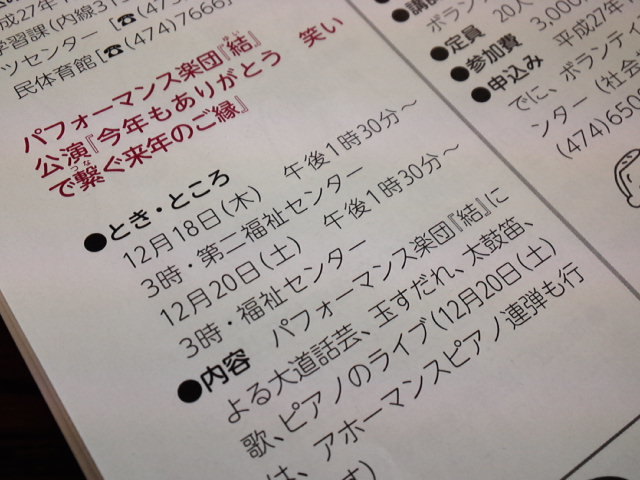 成27年1
学習課(内線31
ツセンター[☎(473
民体育館[☎(474)7666]
パフォーマンス楽団『結』
ゆい
公演『今年もありがとう 笑い
で繋ぐ来年のご縁』
つな
●とき・ところ
12月18日(木) 午後1時30分〜
3時・第二福祉センター
12月20日(土) 午後1時30分〜
3時・福祉センター
●内容 パフォーマンス楽団『結』に
よる大道話芸、玉すだれ、太鼓笛、
歌、ピアノのライブ(12月20日(土)
は、アホーマンスピアノ連弾も行
す)
●講
ボラン
●定員 20人
●参加費 3,000
●申込み 平成27年1
でに、ボランティ
ンター(社会
(474)6508